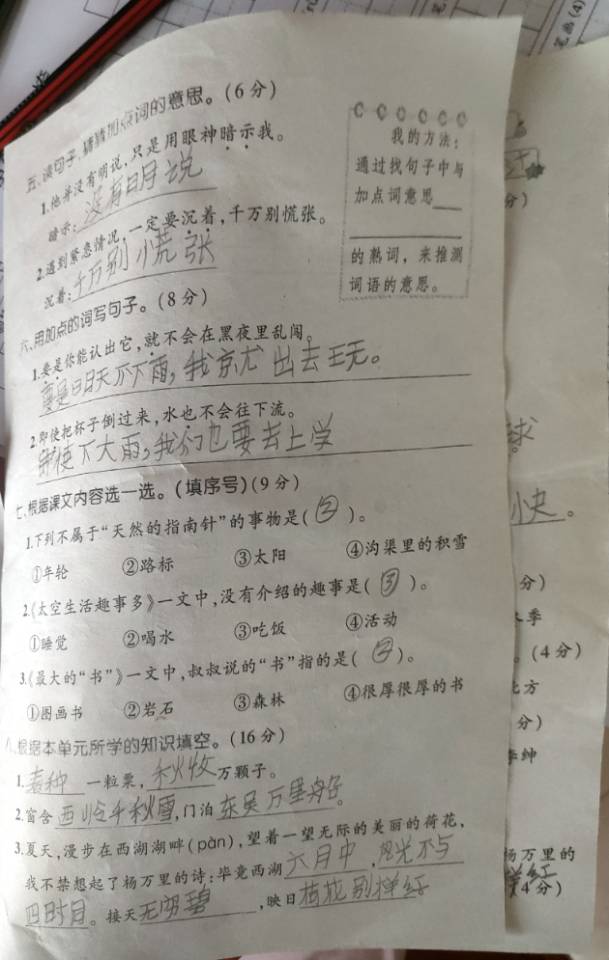 五、读句子,猜猜加点词的意思。(6分)
1.他并没有明说,只是用眼神暗示我。
暗示:没有明说
2.遇到紧急情况,一定要沉着,千万别慌张。
沉着:千万别慌张
我的方法:
通过找句子中与
加点词意思
的熟词,来推测
词语的意思。
六、用加点的词写句子。(8分)
1.要是你能认出它,就不会在黑夜里乱闯。
要是明天不下雨,我就出去玩。
2.即使把杯子倒过来,水也不会往下流。
即使下大雨,我们也要去上学
七、根据课文内容选一选。(填序号)(9分)
1.下列不属于“天然的指南针”的事物是(②)。
①年轮 ②路标 ③太阳 ④沟渠里的积雪
2.《太空生活趣事多》一文中,没有介绍的趣事是(③)。
①睡觉 ②喝水 ③吃饭 ④活动
3.《最大的“书”》一文中,叔叔说的“书”指的是(②)。
①图画书 ②岩石 ③森林 ④很厚很厚的书
八、根据本单元所学的知识填空。(16分)
1.春种一粒粟,秋收万颗子。
2.窗含西岭千秋雪,门泊东吴万里船。
3.夏天,漫步在西湖湖畔(pàn),望着一望无际的美丽的荷花,
我不禁想起了杨万里的诗:毕竟西湖六月中,风光不与
四时同。接天无穷碧,映日荷花别样红
笔画(4)
分)
球
小史。
分)
季
。(4分)
北方
分)
杨万里的
样红
(4分)